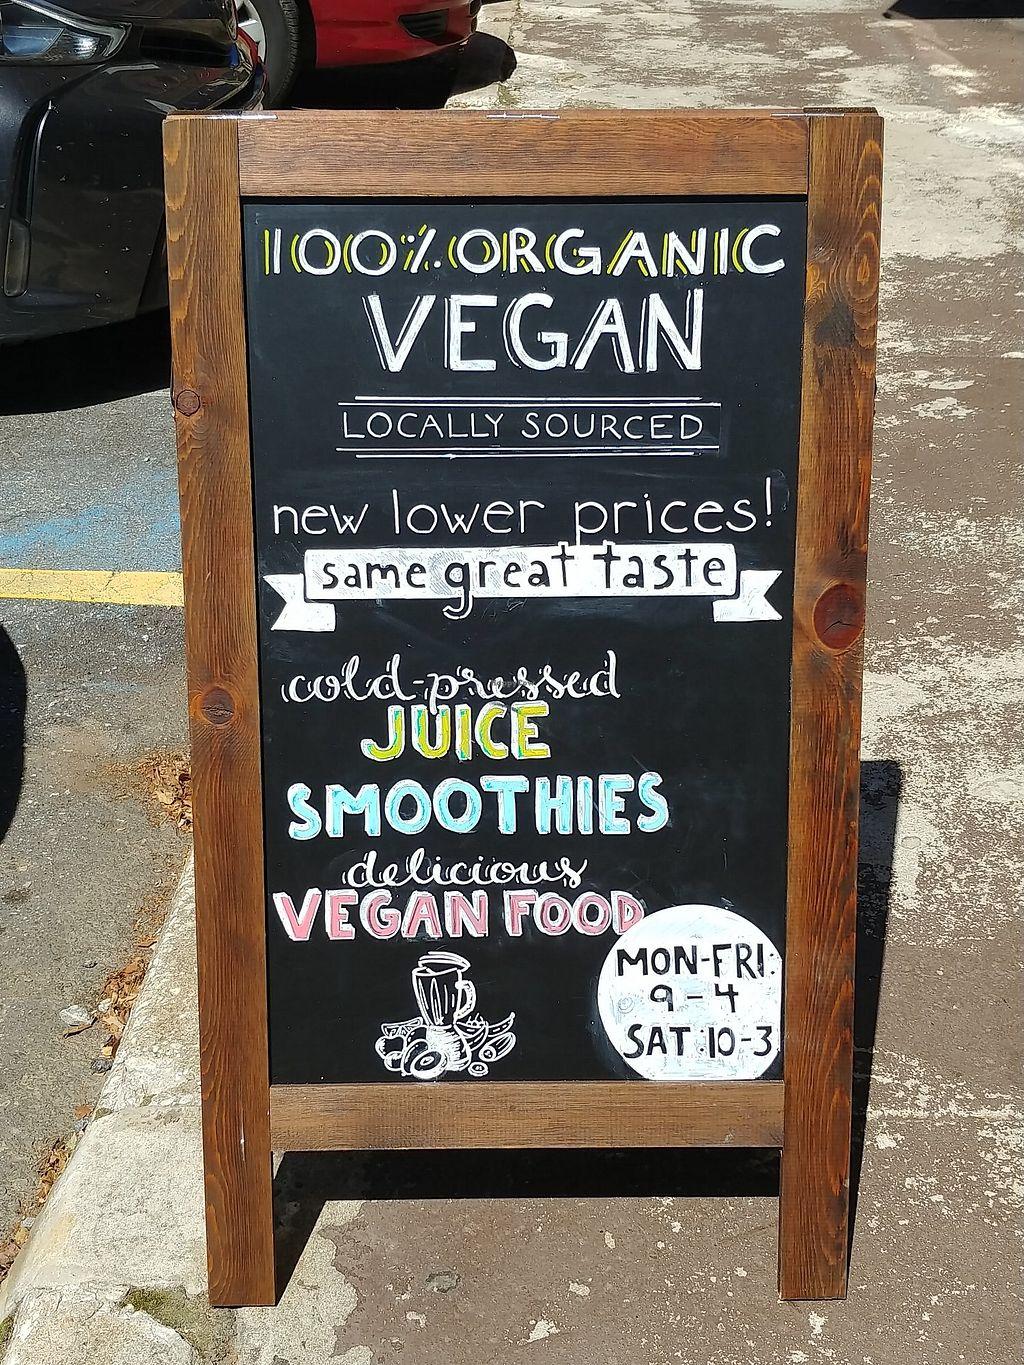 100% ORGANIC
VEGAN
LOCALLY SOURCED
new lower prices!
same great taste
cold-pressed
JUICE
SMOOTHIES
delicious
VEGAN FOOD
MON-FRI:
9-4
SAT:10-3